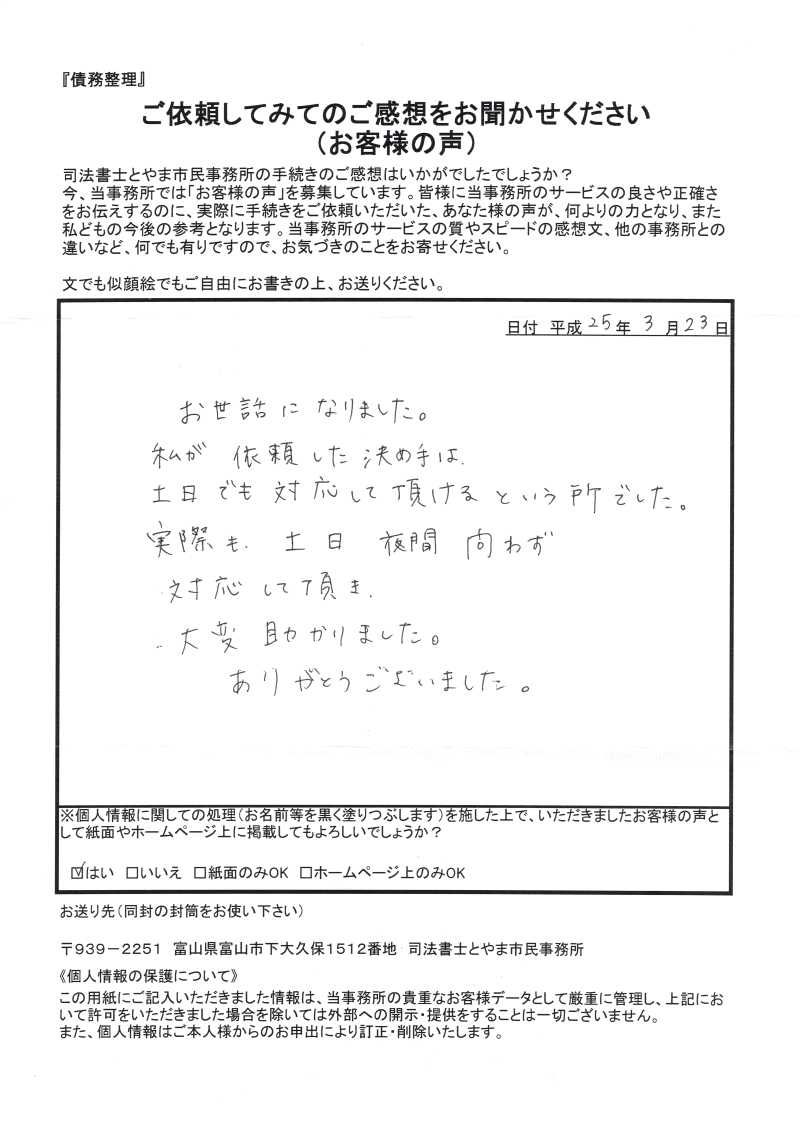 『債務整理』
ご依頼してみてのご感想をお聞かせください
（お客様の声）
司法書士とやま市民事務所の手続きのご感想はいかがでしたでしょうか？
今、当事務所では「お客様の声」を募集しています。皆様に当事務所のサービスの良さや正確さ
をお伝えするのに、実際に手続きをご依頼いただいた、あなた様の声が、何よりの力となり、また
私どもの今後の参考となります。当事務所のサービスの質やスピードの感想文、他の事務所との
違いなど、何でも有りですので、お気づきのことをお寄せください。
文でも似顔絵でもご自由にお書きの上、お送りください。
日付 平成 25 年 3 月 23 日
お世話になりました。
私が 依頼した決め手は、
土日でも 対応して頂けるという所でした。
実際も、土日 夜間 問わず
対応して頂き、
大変 助かりました。
ありがとうございました。
※個人情報に関しての処理（お名前等を黒く塗りつぶします）を施した上で、いただきましたお客様の声と
して紙面やホームページ上に掲載してもよろしいでしょうか？
☑はい □いいえ □紙面のみOK □ホームページ上のみOK
お送り先（同封の封筒をお使い下さい）
〒939－2251 富山県富山市下大久保1512番地 司法書士とやま市民事務所
《個人情報の保護について》
この用紙にご記入いただきました情報は、当事務所の貴重なお客様データとして厳重に管理し、上記にお
いて許可をいただきました場合を除いては外部への開示・提供をすることは一切ございません。
また、個人情報はご本人様からのお申出により訂正・削除いたします。